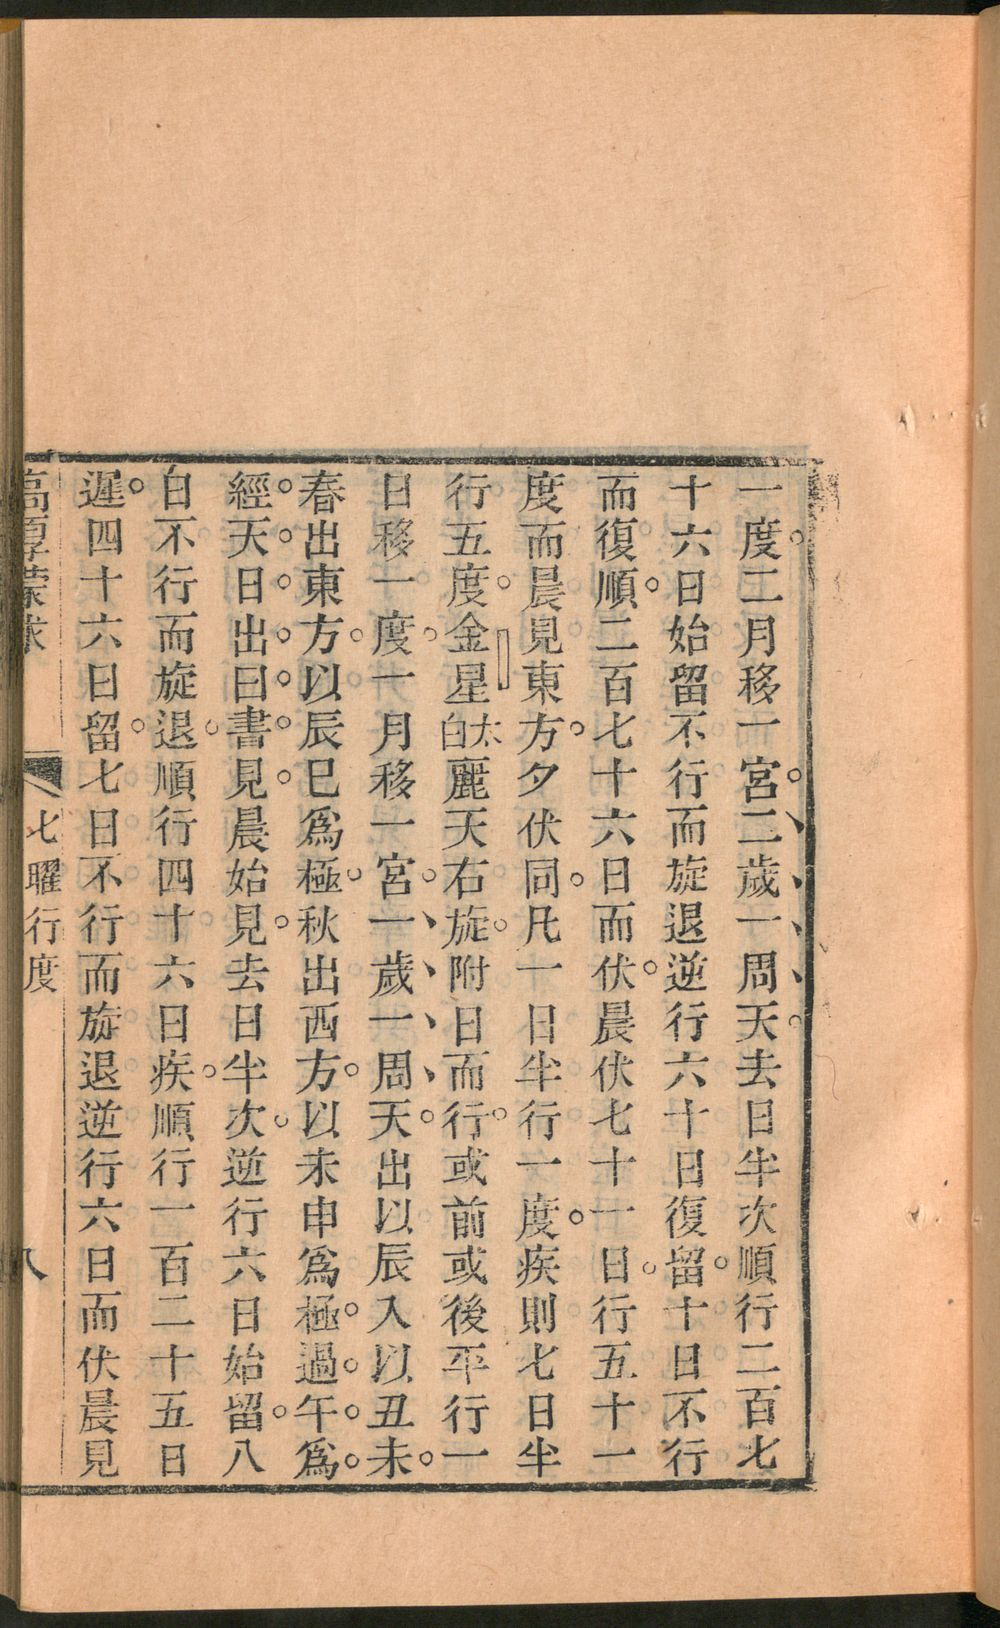 一度二月移一宮二歲一周天去日半次順行二百七
十六日始留不行而旋退逆行六十日復留十日不行
而復順二百七十六日而伏晨伏七十一日行五十一
度而晨見東方夕伏同凡一日半行一度疾則七日半
行五度金星太白麗天右旋附日而行或前或後平行一
日移一度一月移一宮一歲一周天出以辰入以丑未
春出東方以辰巳爲極秋出西方以未申爲極過午爲
經天日出曰晝見晨始見去日半次逆行六日始留八
日不行而旋退順行四十六日疾順行一百二十五日
遲四十六日留七日不行而旋退逆行六日而伏晨見
高厚蒙求 七曜行度 八